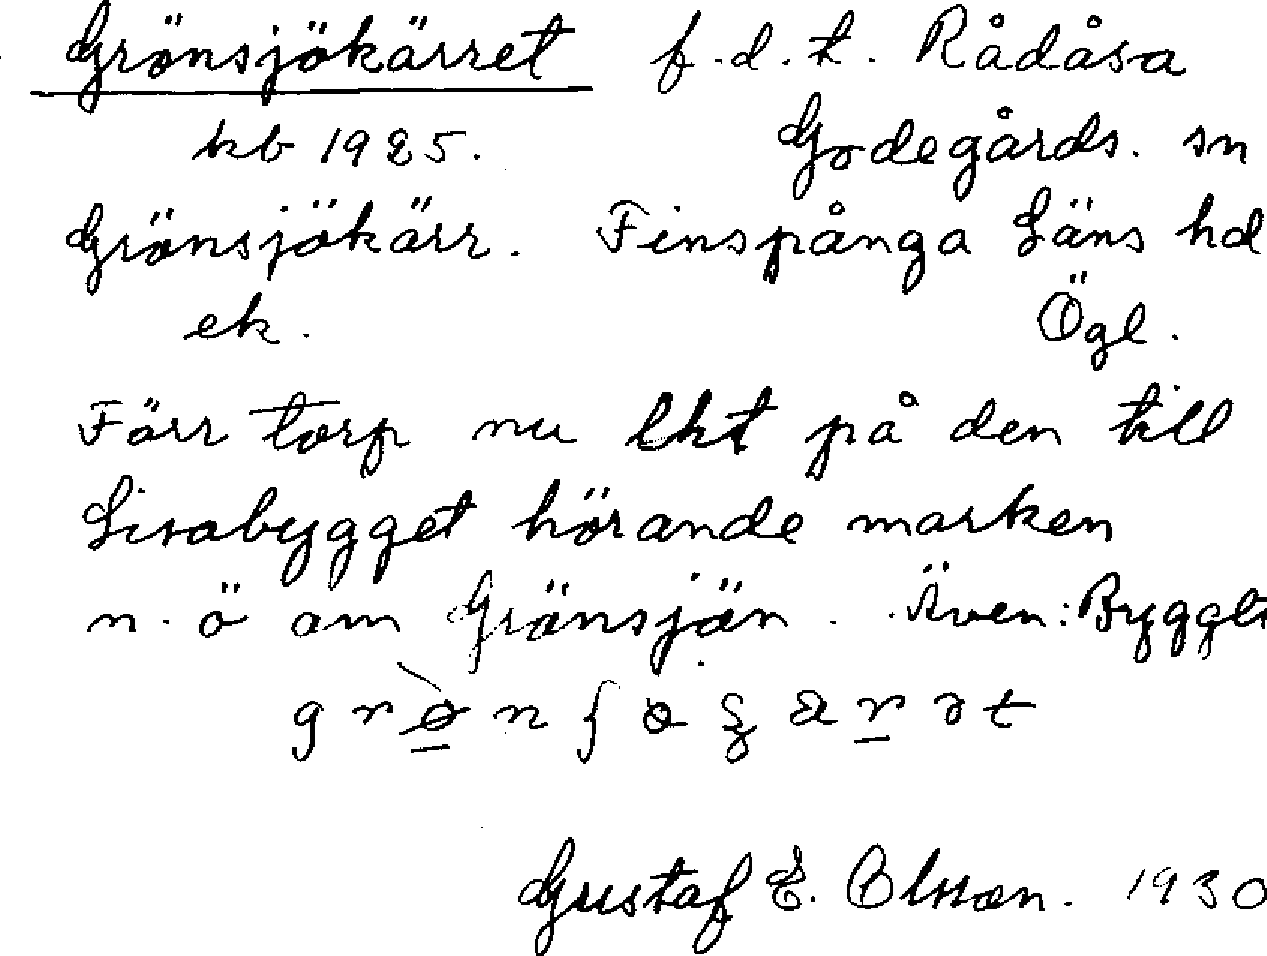 Grönsjökärret f.d.t. Rådåsa
kb 1925. Godegårds. sn
Grönsjökärr. Finspånga Läns hd
ek. Ögl.
Förr torp nu lht på den till
Lisabygget hörande marken
n.ö om Grönsjön. Även: Byggts
Gustaf E. Olsson. 1930